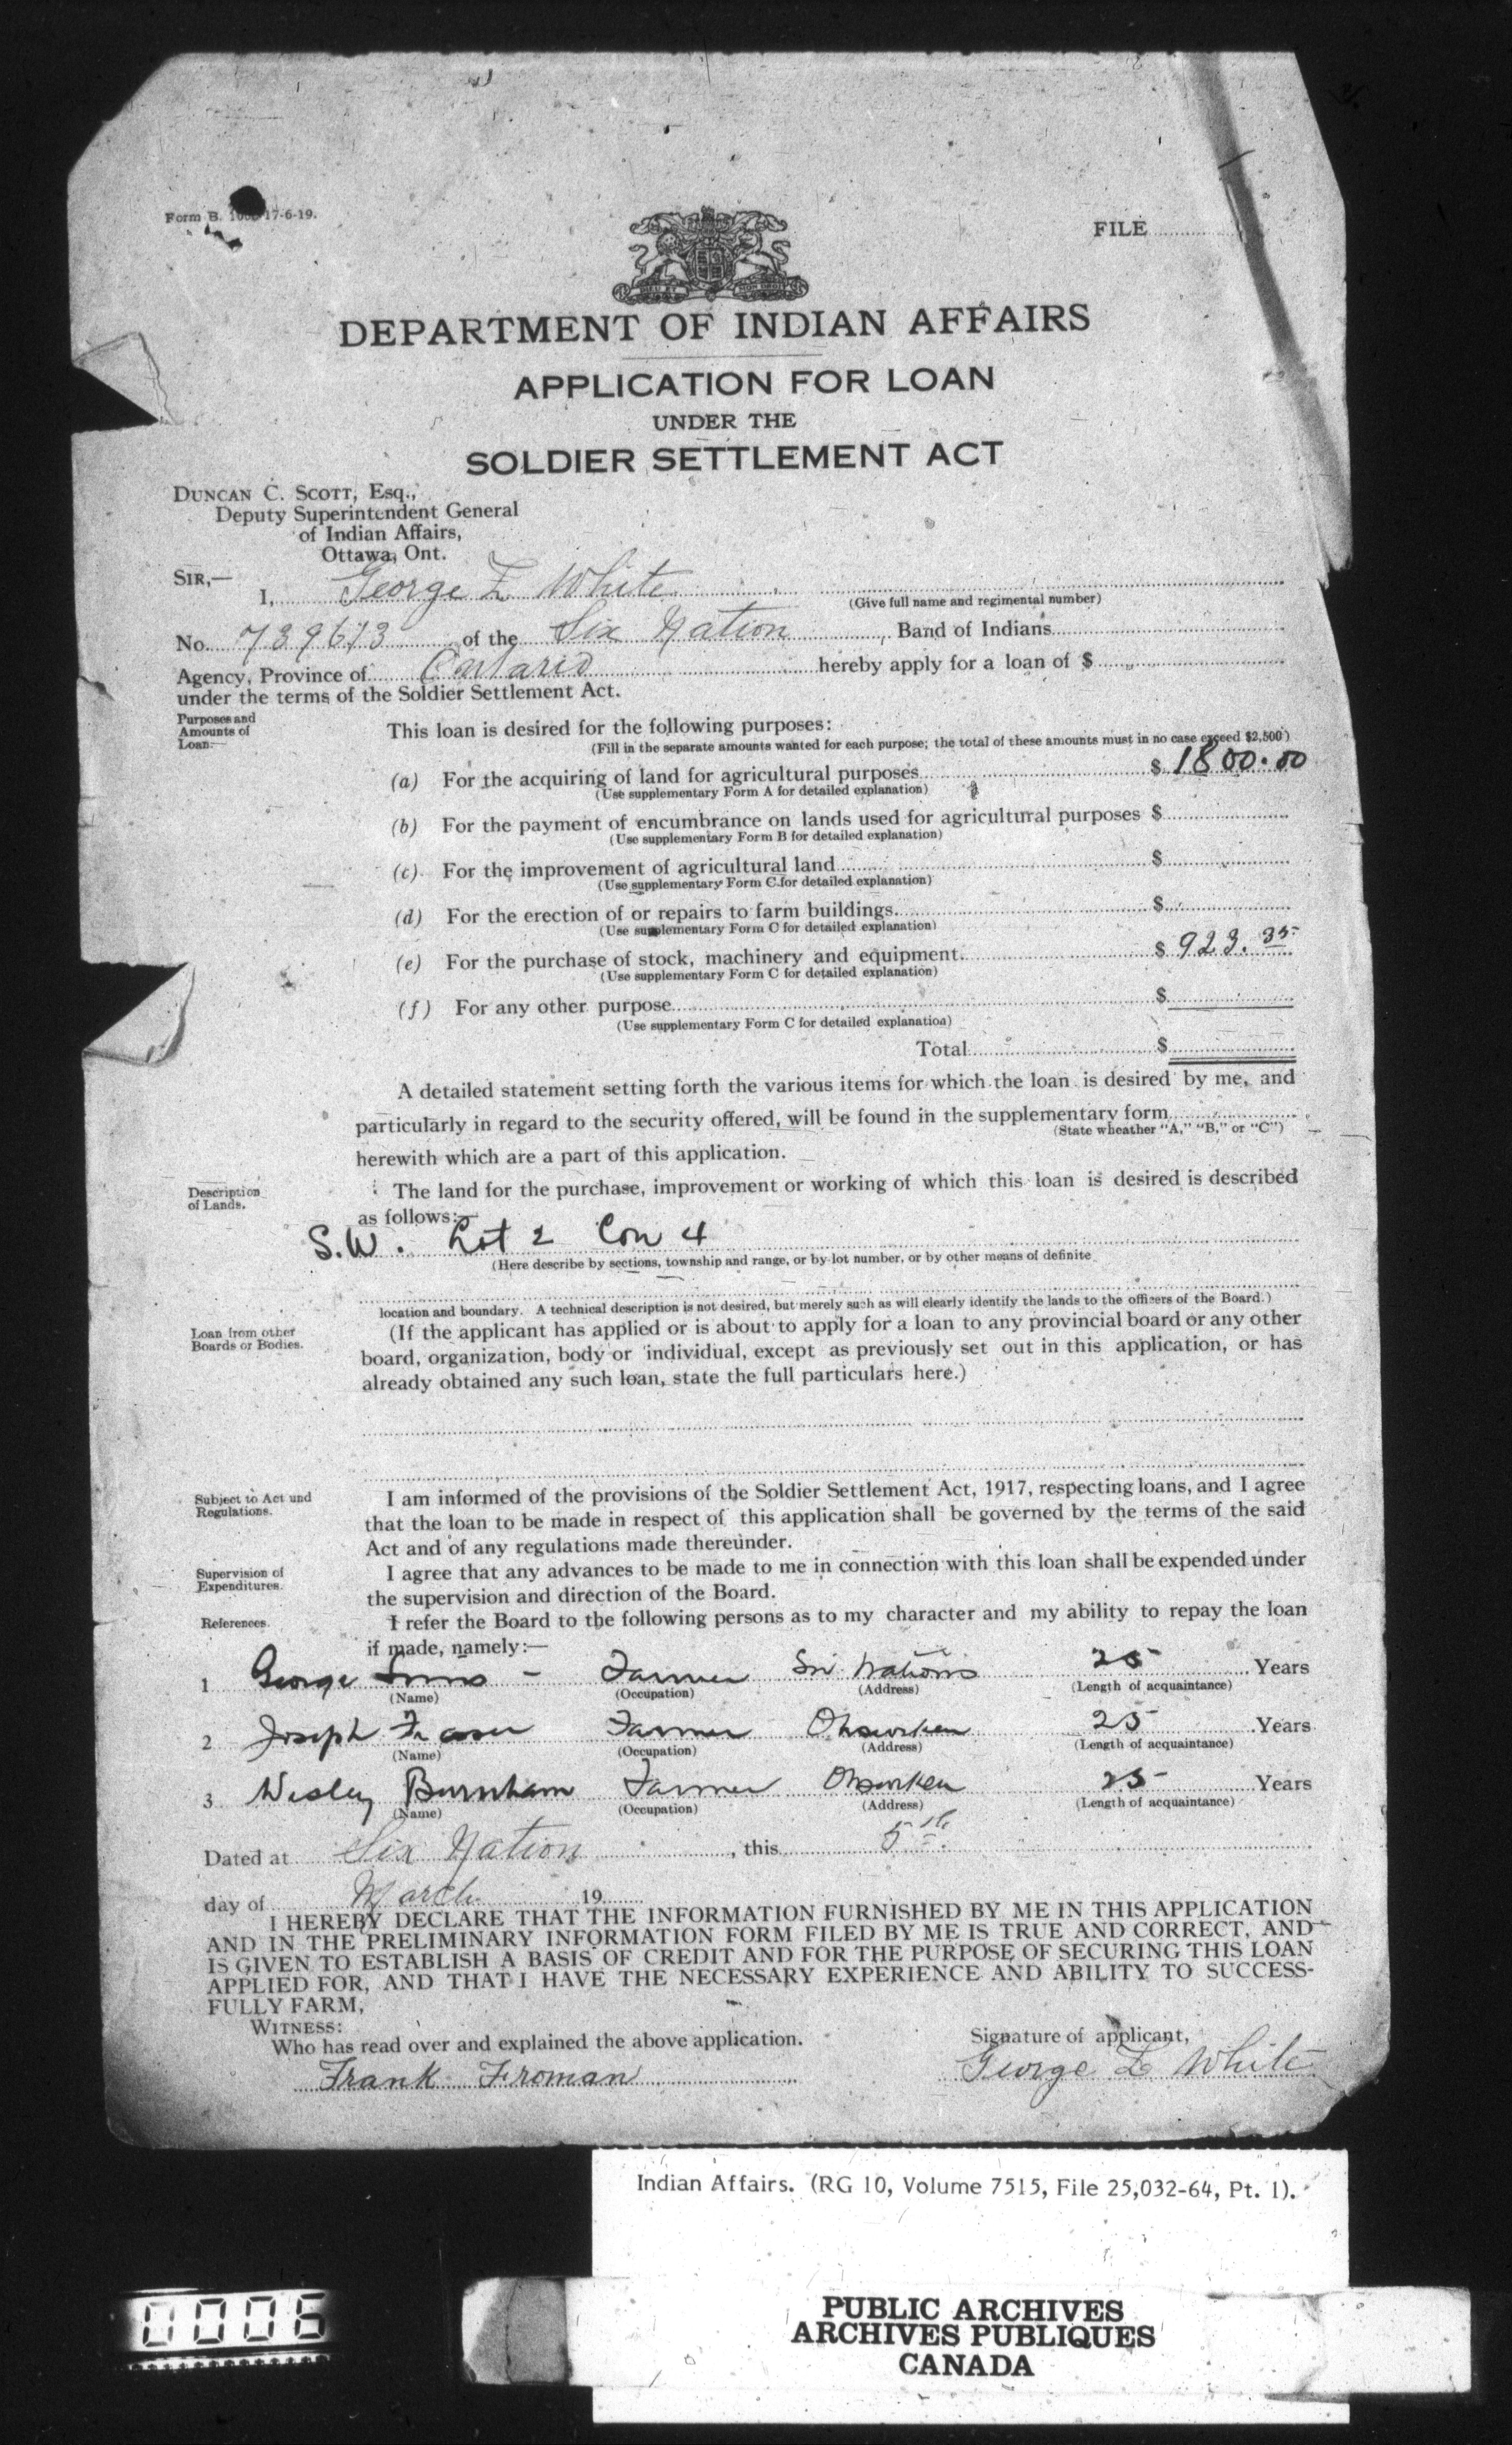 Form B. 17-6-19.
FILE
DEPARTMENT OF INDIAN AFFAIRS
APPLICATION FOR LOAN
UNDER THE
SOLDIER SETTLEMENT ACT
DUNCAN C. SCOTT, Esq.,
Deputy Superintendent General
of Indian Affairs,
Ottawa, Ont.
SIR,—
I, George E White
(Give full name and regimental number)
No. 739613 of the Six Nation, Band of Indians
Agency, Province of Ontario hereby apply for a loan of $
under the terms of the Soldier Settlement Act.
Purposes and
Amounts of
Loan:—
This loan is desired for the following purposes:
(Fill in the separate amounts wanted for each purpose; the total of these amounts must in no case exceed $2,500)
(a) For the acquiring of land for agricultural purposes $ 1800.00
(Use supplementary Form A for detailed explanation)
(b) For the payment of encumbrance on lands used for agricultural purposes $
(Use supplementary Form B for detailed explanation)
(c) For the improvement of agricultural land $
(Use supplementary Form C for detailed explanation)
(d) For the erection of or repairs to farm buildings $
(Use supplementary Form C for detailed explanation)
(e) For the purchase of stock, machinery and equipment. $ 923.35
(Use supplementary Form C for detailed explanation)
(f) For any other purpose $
(Use supplementary Form C for detailed explanation)
Total $
A detailed statement setting forth the various items for which the loan is desired by me, and
particularly in regard to the security offered, will be found in the supplementary form
(State wheather "A," "B," or "C")
herewith which are a part of this application.
Description
of Lands.
The land for the purchase, improvement or working of which this loan is desired is described
as follows:—
S.W. Lot 2 Con 4
(Here describe by sections, township and range, or by lot number, or by other means of definite
location and boundary. A technical description is not desired, but merely such as will clearly identify the lands to the officers of the Board.)
Loan from other
Boards or Bodies.
(If the applicant has applied or is about to apply for a loan to any provincial board or any other
board, organization, body or individual, except as previously set out in this application, or has
already obtained any such loan, state the full particulars here.)
Subject to Act und
Regulations.
I am informed of the provisions of the Soldier Settlement Act, 1917, respecting loans, and I agree
that the loan to be made in respect of this application shall be governed by the terms of the said
Act and of any regulations made thereunder.
Supervision of
Expenditures.
I agree that any advances to be made to me in connection with this loan shall be expended under
the supervision and direction of the Board.
References.
I refer the Board to the following persons as to my character and my ability to repay the loan
if made, namely:—
1 George Farmer Six Nations 25 Years
(Name) (Occupation) (Address) (Length of acquaintance)
2 Joseph Fraser Farmer Ohsweken 25 Years
(Name) (Occupation) (Address) (Length of acquaintance)
3 Wesley Burnham Farmer Ohsweken 25 Years
(Name) (Occupation) (Address) (Length of acquaintance)
Dated at Six Nation, this 5th
day of March 19
I HEREBY DECLARE THAT THE INFORMATION FURNISHED BY ME IN THIS APPLICATION
AND IN THE PRELIMINARY INFORMATION FORM FILED BY ME IS TRUE AND CORRECT, AND
IS GIVEN TO ESTABLISH A BASIS OF CREDIT AND FOR THE PURPOSE OF SECURING THIS LOAN
APPLIED FOR, AND THAT I HAVE THE NECESSARY EXPERIENCE AND ABILITY TO SUCCESS-
FULLY FARM,
WITNESS:
Who has read over and explained the above application.
Signature of applicant,
Frank Froman
George E White
Indian Affairs. (RG 10, Volume 7515, File 25,032-64, Pt. 1).
0006
PUBLIC ARCHIVES
ARCHIVES PUBLIQUES
CANADA